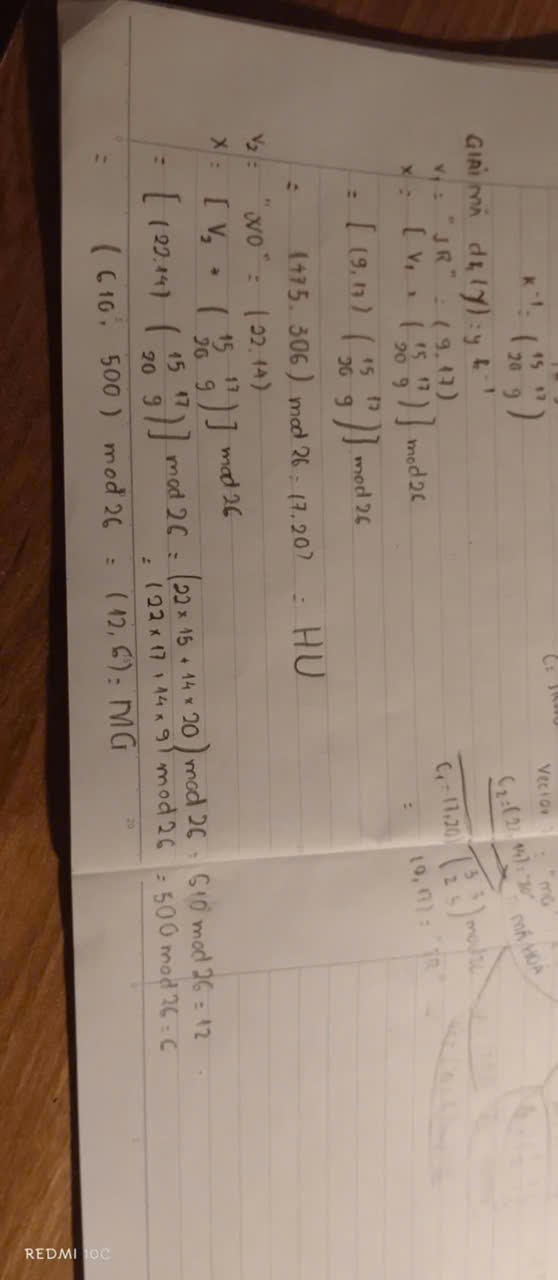 K⁻¹ = (15 17
20 9)
GIẢI MÃ dk(y) = y k⁻¹
V₁ = "JR" = (9.17)
X = [V₁ * (15 17
20 9)] mod 26
= [(9.17) (15 17
20 9)] mod 26
= (475. 306) mod 26 = (7.20) = HU
V₂ = "WO" = (22.14)
X = [V₂ * (15 17
20 9)] mod 26
= [(22.14) (15 17
20 9)] mod 26 = (22 x 15 + 14 x 20) mod 26 = 610 mod 26 = 12
= (22 x 17 + 14 x 9) mod 26 = 500 mod 26 = 6
= (610, 500) mod 26 = (12, 6) = MG
Vector
C₂ = (22,14) =
MÃ HÓA
C₁ = (7,20)
mod 26
=
REDMI 10C